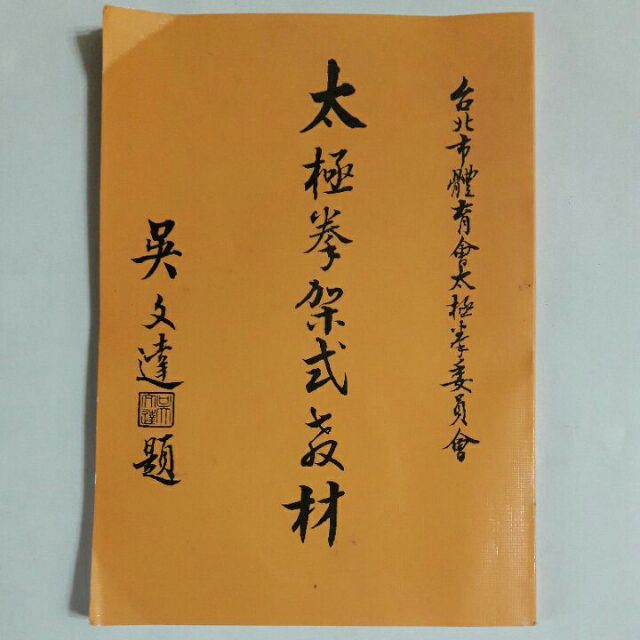 台北市體育會太極拳委員會
太極拳架式教材
吳文達
吳文達
題